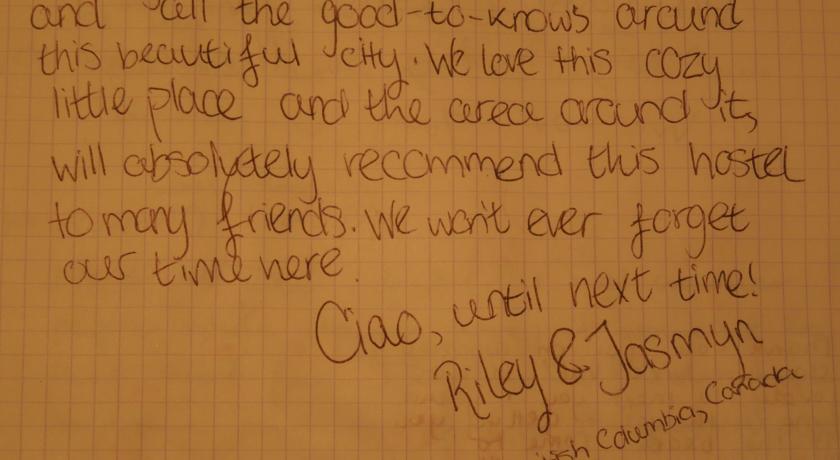 and all the good-to-knows around
this beautiful city. We love this cozy
little place and the area around it,
will absolutely recommend this hostel
to many friends. We won't ever forget
our time here.
Ciao, until next time!
Riley & Jasmyn
Columbia, Canada